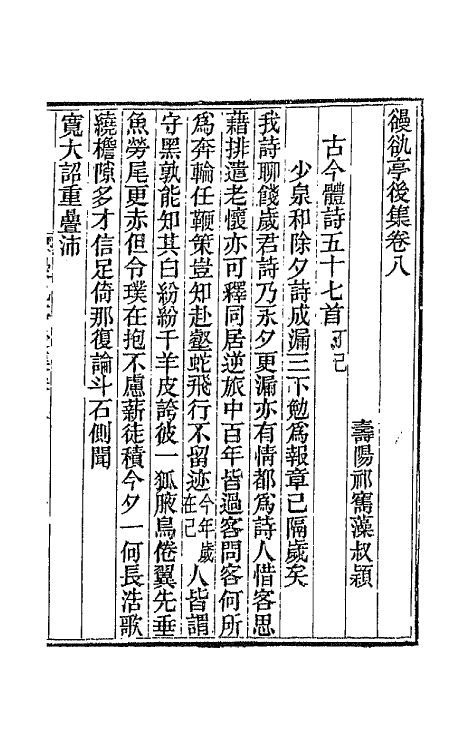 䜱𠔃亭後集卷八
壽陽祁寯藻叔穎
古今體詩五十七首丁巳
少泉和除夕詩成漏三下勉爲報章已隔歲矣
我詩聊餞歲君詩乃永夕更漏亦有情都爲詩人惜客思
藉排遣老懷亦可釋同居逆旅中百年皆過客問客何所
爲奔輪任鞭策豈知赴壑蛇飛行不留迹今年歲在巳人皆謂
守黑孰能知其白紛紛千羊皮誇彼一狐腋鳥倦翼先垂
魚勞尾更赤但令璞在抱不慮薪徒積今夕一何長浩歌
繞檐隙多才信足倚那復論斗石側聞
寬大詔重疊沛